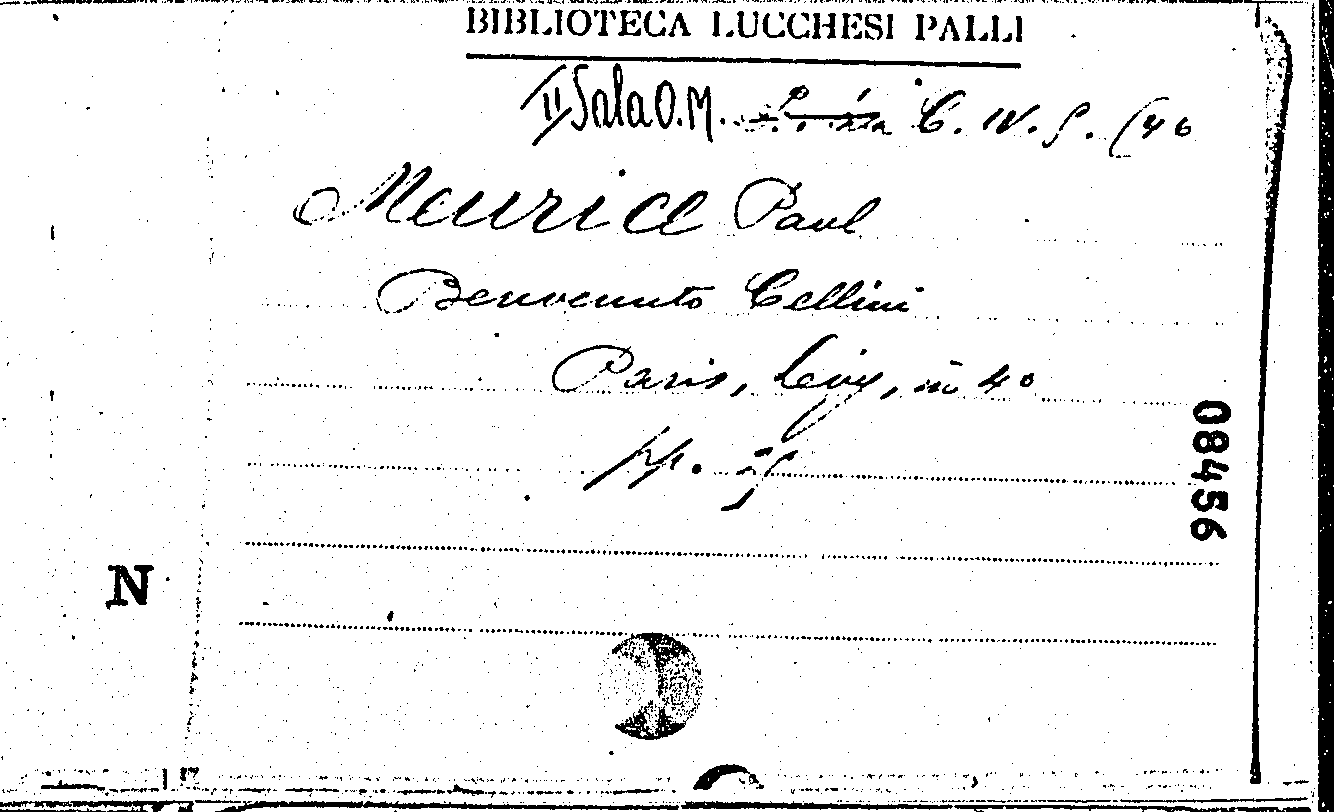 BIBLIOTECA LUCCHESI PALLI
II Sala O.M. C. IV. (46
Meurice Paul
Benvenuto Cellini
Paris, Lévy, in 4º
pp.
08456
N